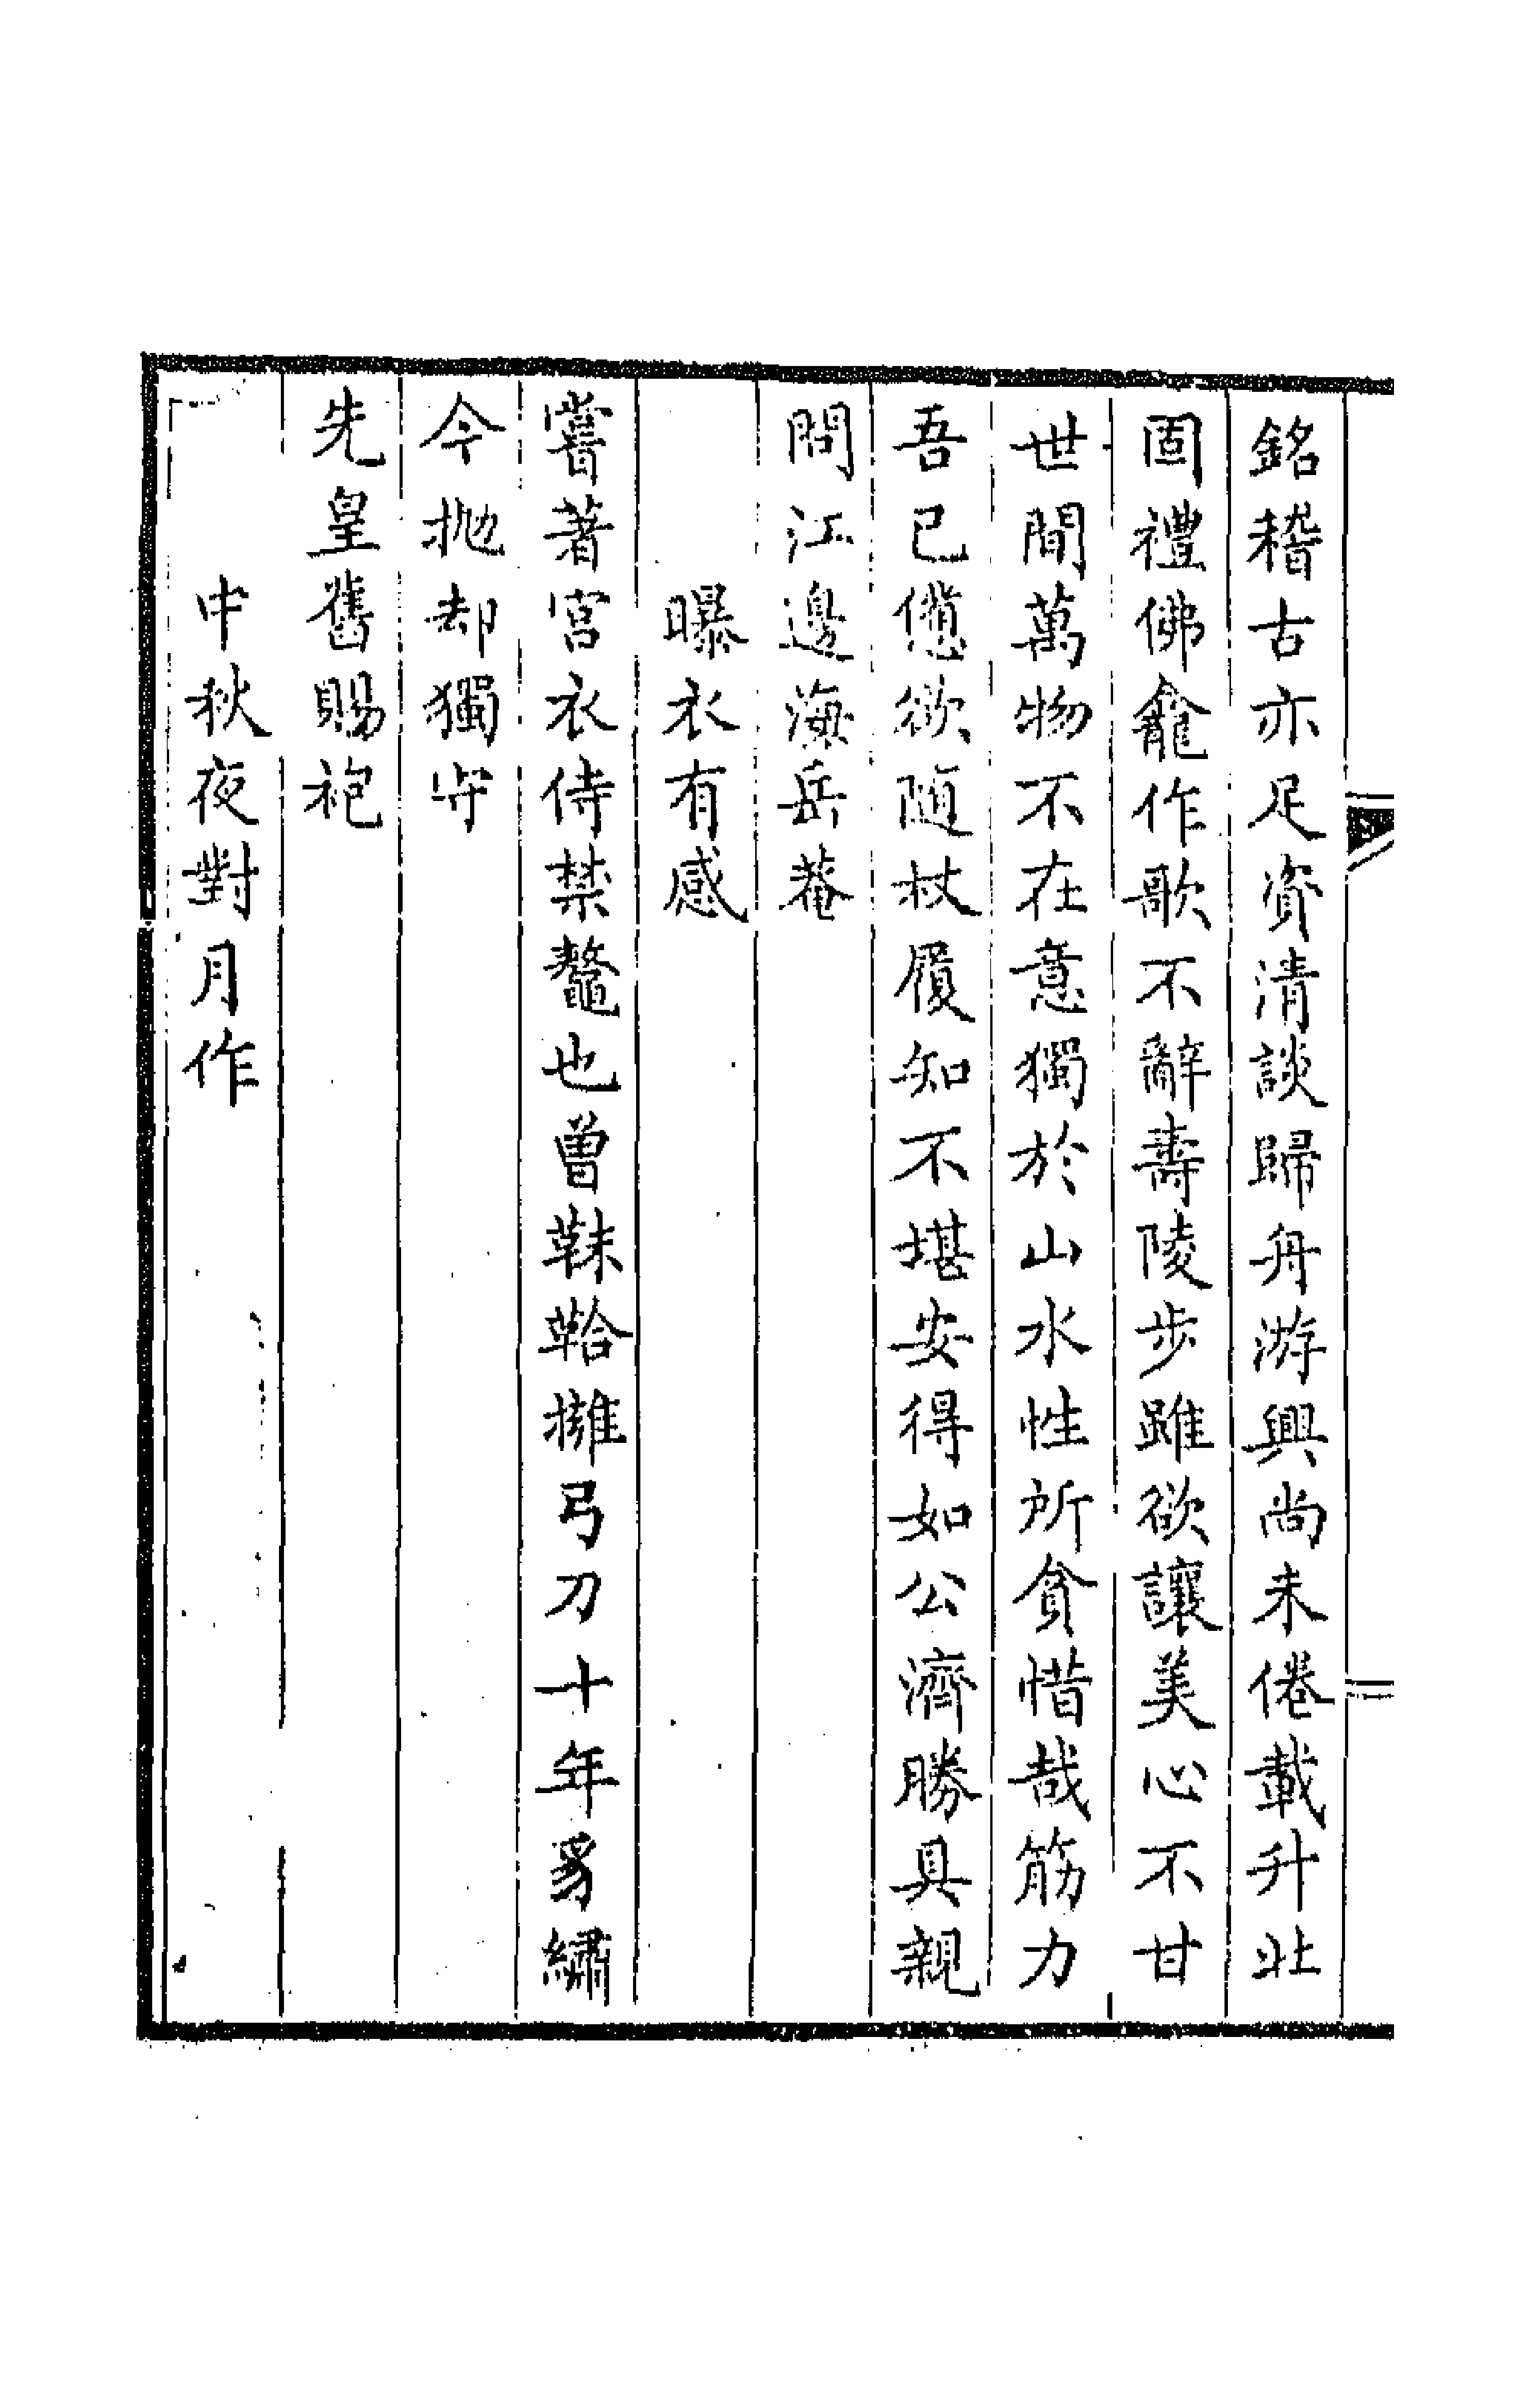 銘稽古亦足資清談歸舟游興尚未倦載升北
固禮佛龕作歌不辭壽陵步雖欲讓美心不甘
世間萬物不在意獨於山水性所貪惜哉筋力
吾已憊欲随杖屨知不堪安得如公濟勝具親
問江邊海岳菴
曝衣有感
嘗著宮衣侍禁鼇也曽韎韐擁弓刀十年豸繡
今抛却獨守
先皇舊賜袍
中秋夜對月作